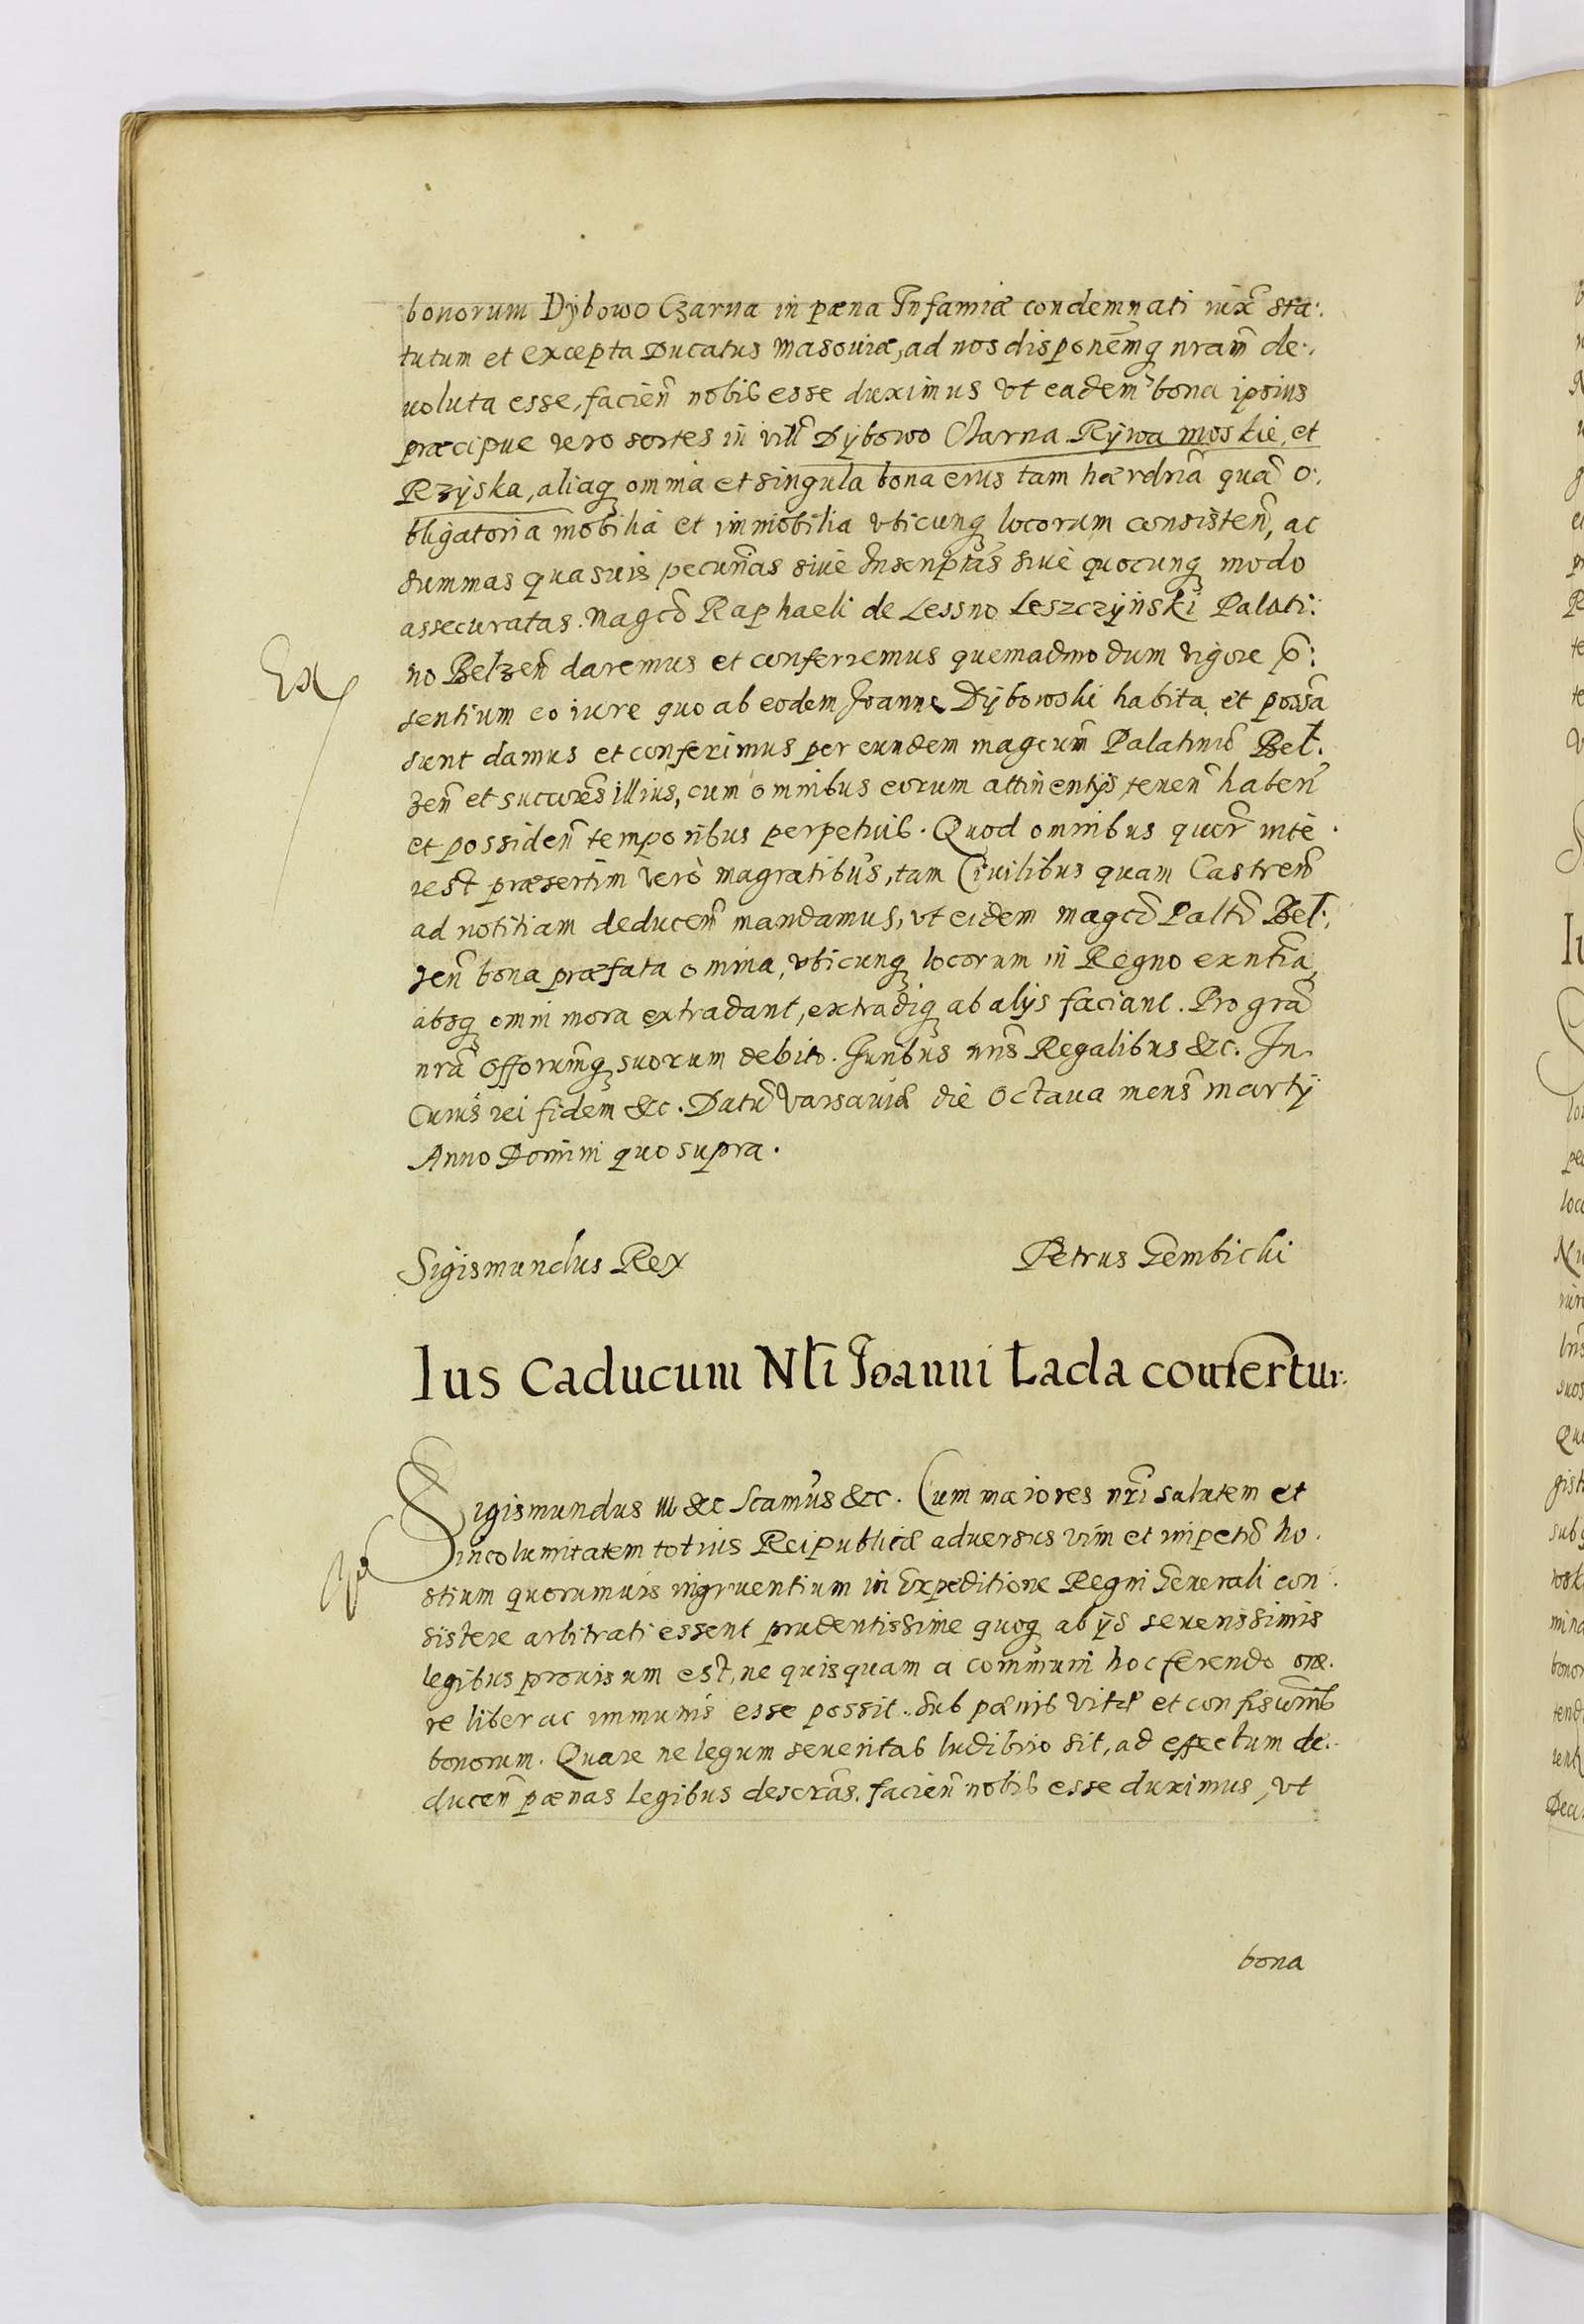 bonorum Dybowo Czarna in pæna Infamiæ condemnati iuxᷓ sta:
tutum et excepta Ducatus Masouiæ, ad nos disponēmq nram̃ de:
uoluta esse, facien̄ nobis esse duximus vt eadem bona ipsius
præcipue vero sortes in vill̃ Dybowo Czarna Rywa moskie, et
Rzyska, aliaq omnia et singula bona eius tam hærdriã quã o:
bligatoria mobilia et immobilia vbicunq locorum consisten̄, ac
summas quasuis pecun̄as siue Inscriptas siue quocunq modo
assecuratas. Magc̃o Raphaeli de Lessno Leszczyński Palati:
no Belzen̄ daremus et conferremus quemadmodum vigore p̃:
Ex
sentium eo iure quo ab eodem Joanne Dybowski habita et possã
sunt damus et conferimus per eundem magcum̃ Palatinũ Bel:
zen̄ et succores̃ illius, cum omnibus eorum attinentijs tenen̄ haben̄
et possiden̄ temporibus perpetuis. Quod omnibus quor̃ inte
rest præsertim vero magratibus, tam Ciuilibus quam Castren̄
ad notitiam deducen̄ mandamus, vt eidem magc̃o Palt̃o Bel:
zen̄ bona præfata omnia, vbicunq locorum in Regno exntĩa,
absq omni mora extradant, extradiq ab alijs faciant. Pro grã
nrã Offorumq̃ suorum debito. Juribus nris̃ Regalibus &c. In
Cuius rei fidem &c. Datũ Varsauiæ die Octaua mens̃ martij
Anno Domini quo supra.
Sigismundus Rex Petrus Gembicki
Ius Caducum Nbl̃i Joanni Łada confertur.
Sigismundus III &c Scamus̃ &c. Cum maiores nrĩ salutem et
incolumitatem totius Reipublicæ aduersus vim et impetũ ho
stium quorumuis ingruentium in Expeditione Regni Generali con
sistere arbitrati essent prudentissime quoq ab ijs seuerissimis
legibus prouisum est, ne quisquam a communi hoc ferendo one
re liber ac immunis esse possit. Sub pænis vitæ et confiscomĩb
bonorum. Quare ne legum seueritas ludibrio sit, ad effectum de:
ducen̄ pænas legibus descrãs. facien̄ nobis esse duximus, vt
bona